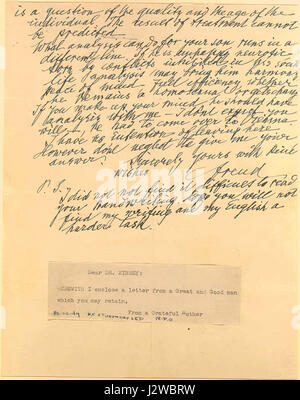 is a question of the quality and the age of the
individual. The result of treatment cannot
be predicted.
What analysis can do for your son runs in a
different line. If he is unhappy, neurotic,
torn by conflicts, inhibited in his social
life, analysis may bring him harmony,
peace of mind, full efficiency whether
he remains a homosexual or gets changed.
If you make up your mind he should have
analysis with me I dont expect you
will he has to come over to Vienna.
I have no intention of leaving here.
However dont neglect to give me your
answer.
Sincerely yours with kind
wishes
Freud
P.S. I did not find it difficult to read
your handwriting. Hope you will not
find my writing and my English a
harder task.
Dear DR. KINSEY:
HEREWITH I enclose a letter from a Great and Good man
which you may retain.
From a Grateful Mother
alamy
Image ID: J2WBRW
www.alamy.com